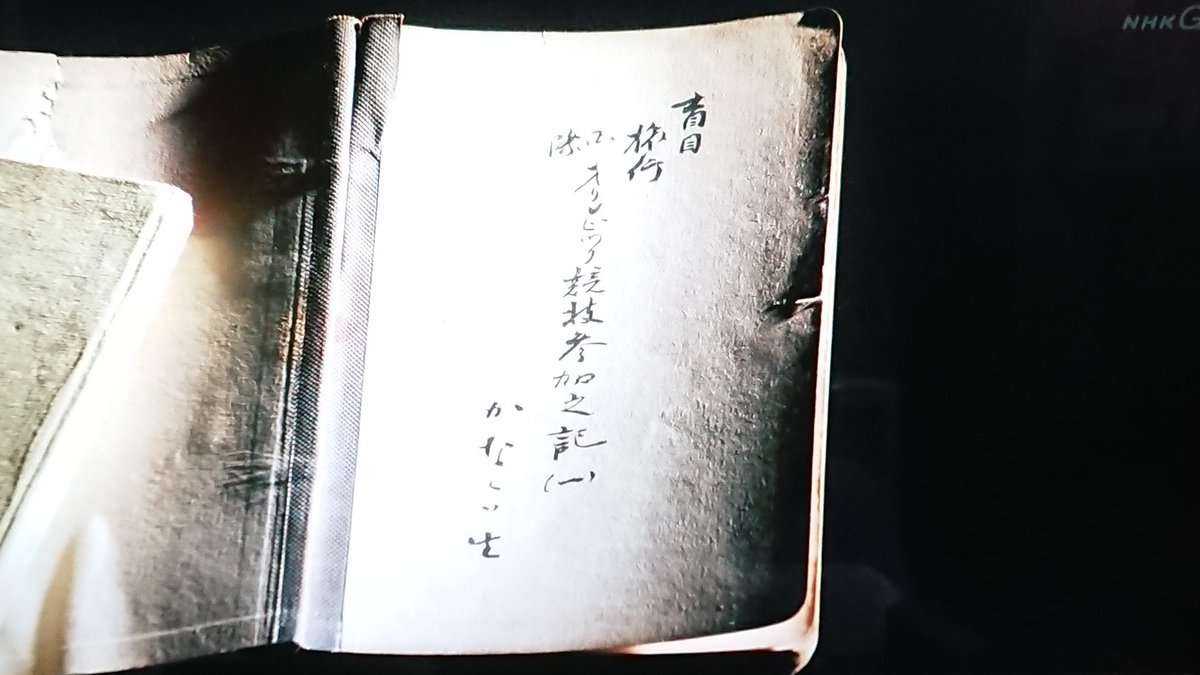 盲目
旅行
国際オリムピツク競技参加之記(一)
かなくり生
NHK G